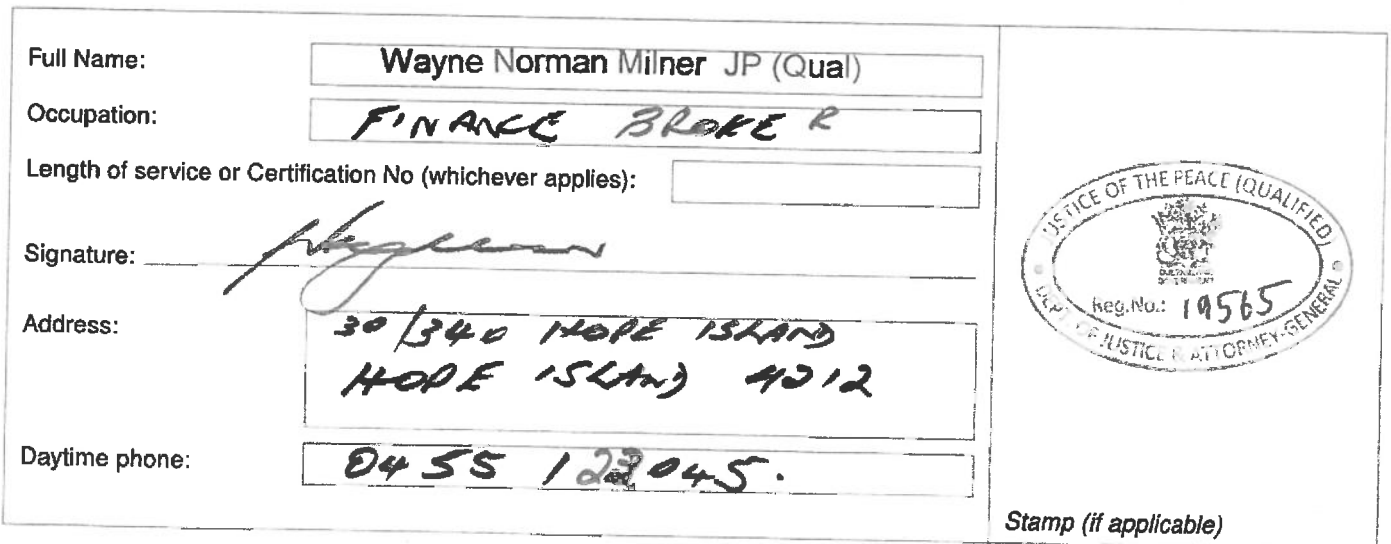 Full Name: Wayne Norman Milner JP (Qual)
Occupation: FINANCE BROKER
Length of service or Certification No (whichever applies):
Signature:
Address: 30/340 HOPE ISLAND
HOPE ISLAND 4212
Daytime phone: 0455 123045.
JUSTICE OF THE PEACE (QUALIFIED)
Reg.No.: 19565
DEPT. OF JUSTICE & ATTORNEY-GENERAL
Stamp (if applicable)